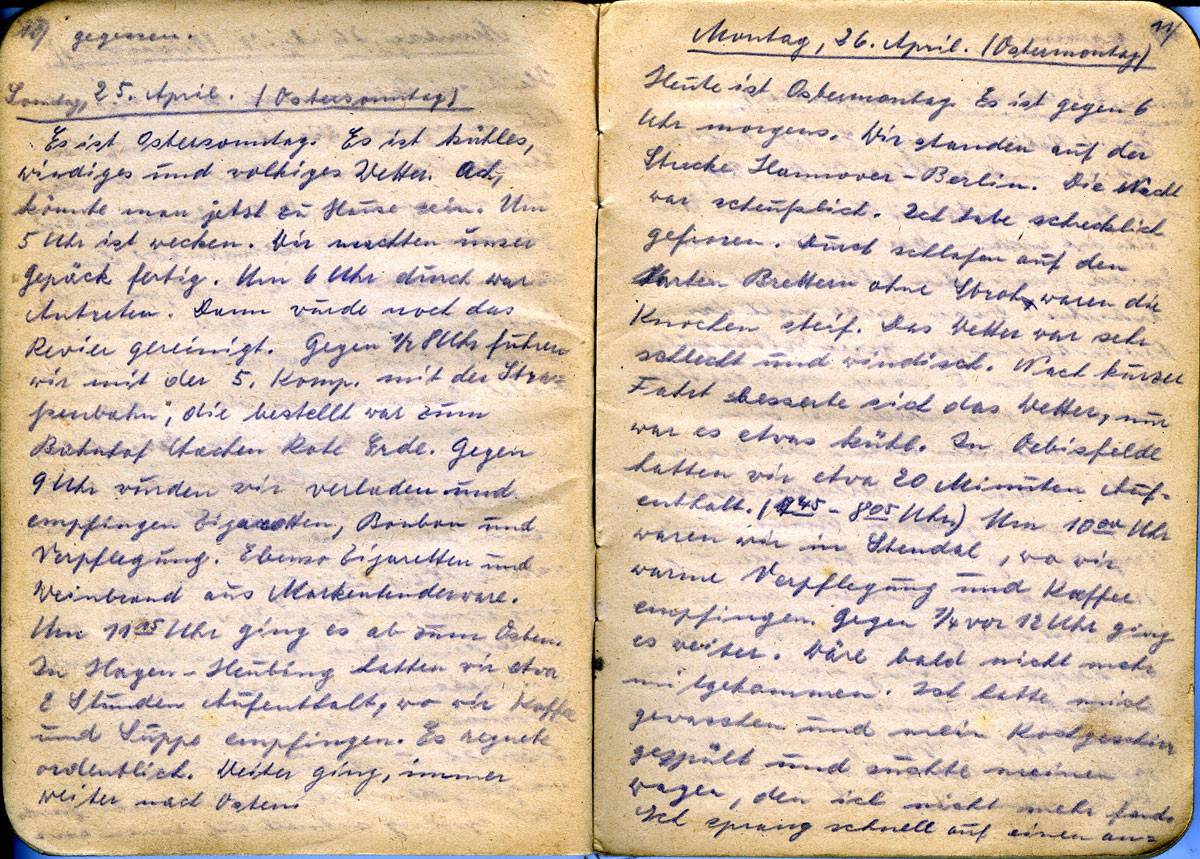 10/ gegessen.
Sonntag, 25. April. (Ostersonntag)
Es ist Ostersonntag. Es ist kühles,
windiges und wolkiges Wetter. Ach,
könnte man jetzt zu Hause sein. Um
5 Uhr ist wecken. Wir machten unser
Gepäck fertig. Um 6 Uhr durch war
Antreten. Dann wurde noch das
Revier gereinigt. Gegen 1/2 8 Uhr fuhren
wir mit der 5. Komp. mit der Stras-
senbahn, die bestellt war zum
Bahnhof Aachen Rote Erde. Gegen
9 Uhr wurden wir verladen und
empfingen Zigaretten, Bonbon und
Verpflegung. Ebenso Zigaretten und
Weinbrand aus Markentenderware.
Um 11 15 Uhr ging es ab zum Osten.
In Hagen-Heubing hatten wir etwa
2 Stunden Aufenthalt, wo wir Kaffee
und Suppe empfingen. Es regnete
ordentlich. Weiter ging, immer
weiter nach Osten.
11/
Montag, 26. April. (Ostermontag)
Heute ist Ostermontag. Es ist gegen 6
Uhr morgens. Wir standen auf der
Strecke Hannover-Berlin. Die Nacht
war scheußlich. Ich habe schrecklich
gefroren. Durch schlafen auf den
harten Brettern ohne Stroh waren die
Knochen steif. Das Wetter war sehr
schlecht und windisch. Nach kurzer
Fahrt besserte sich das Wetter, nur
war es etwas kühl. In Oebisfelde
hatten wir etwa 20 Minuten Auf-
enthalt. (7 45 - 8 05 Uhr) Um 10 00 Uhr
waren wir in Stendal, wo wir
warme Verpflegung und Kaffee
empfingen. Gegen 3/4 vor 12 Uhr ging
es weiter. Wäre bald nicht mehr
mitgekommen. Ich hatte mich
gewaschen und mein Kochgeschirr
gespült und suchte meinen
wagen, den ich nicht mehr fand.
Ich sprang schnell auf einen an-